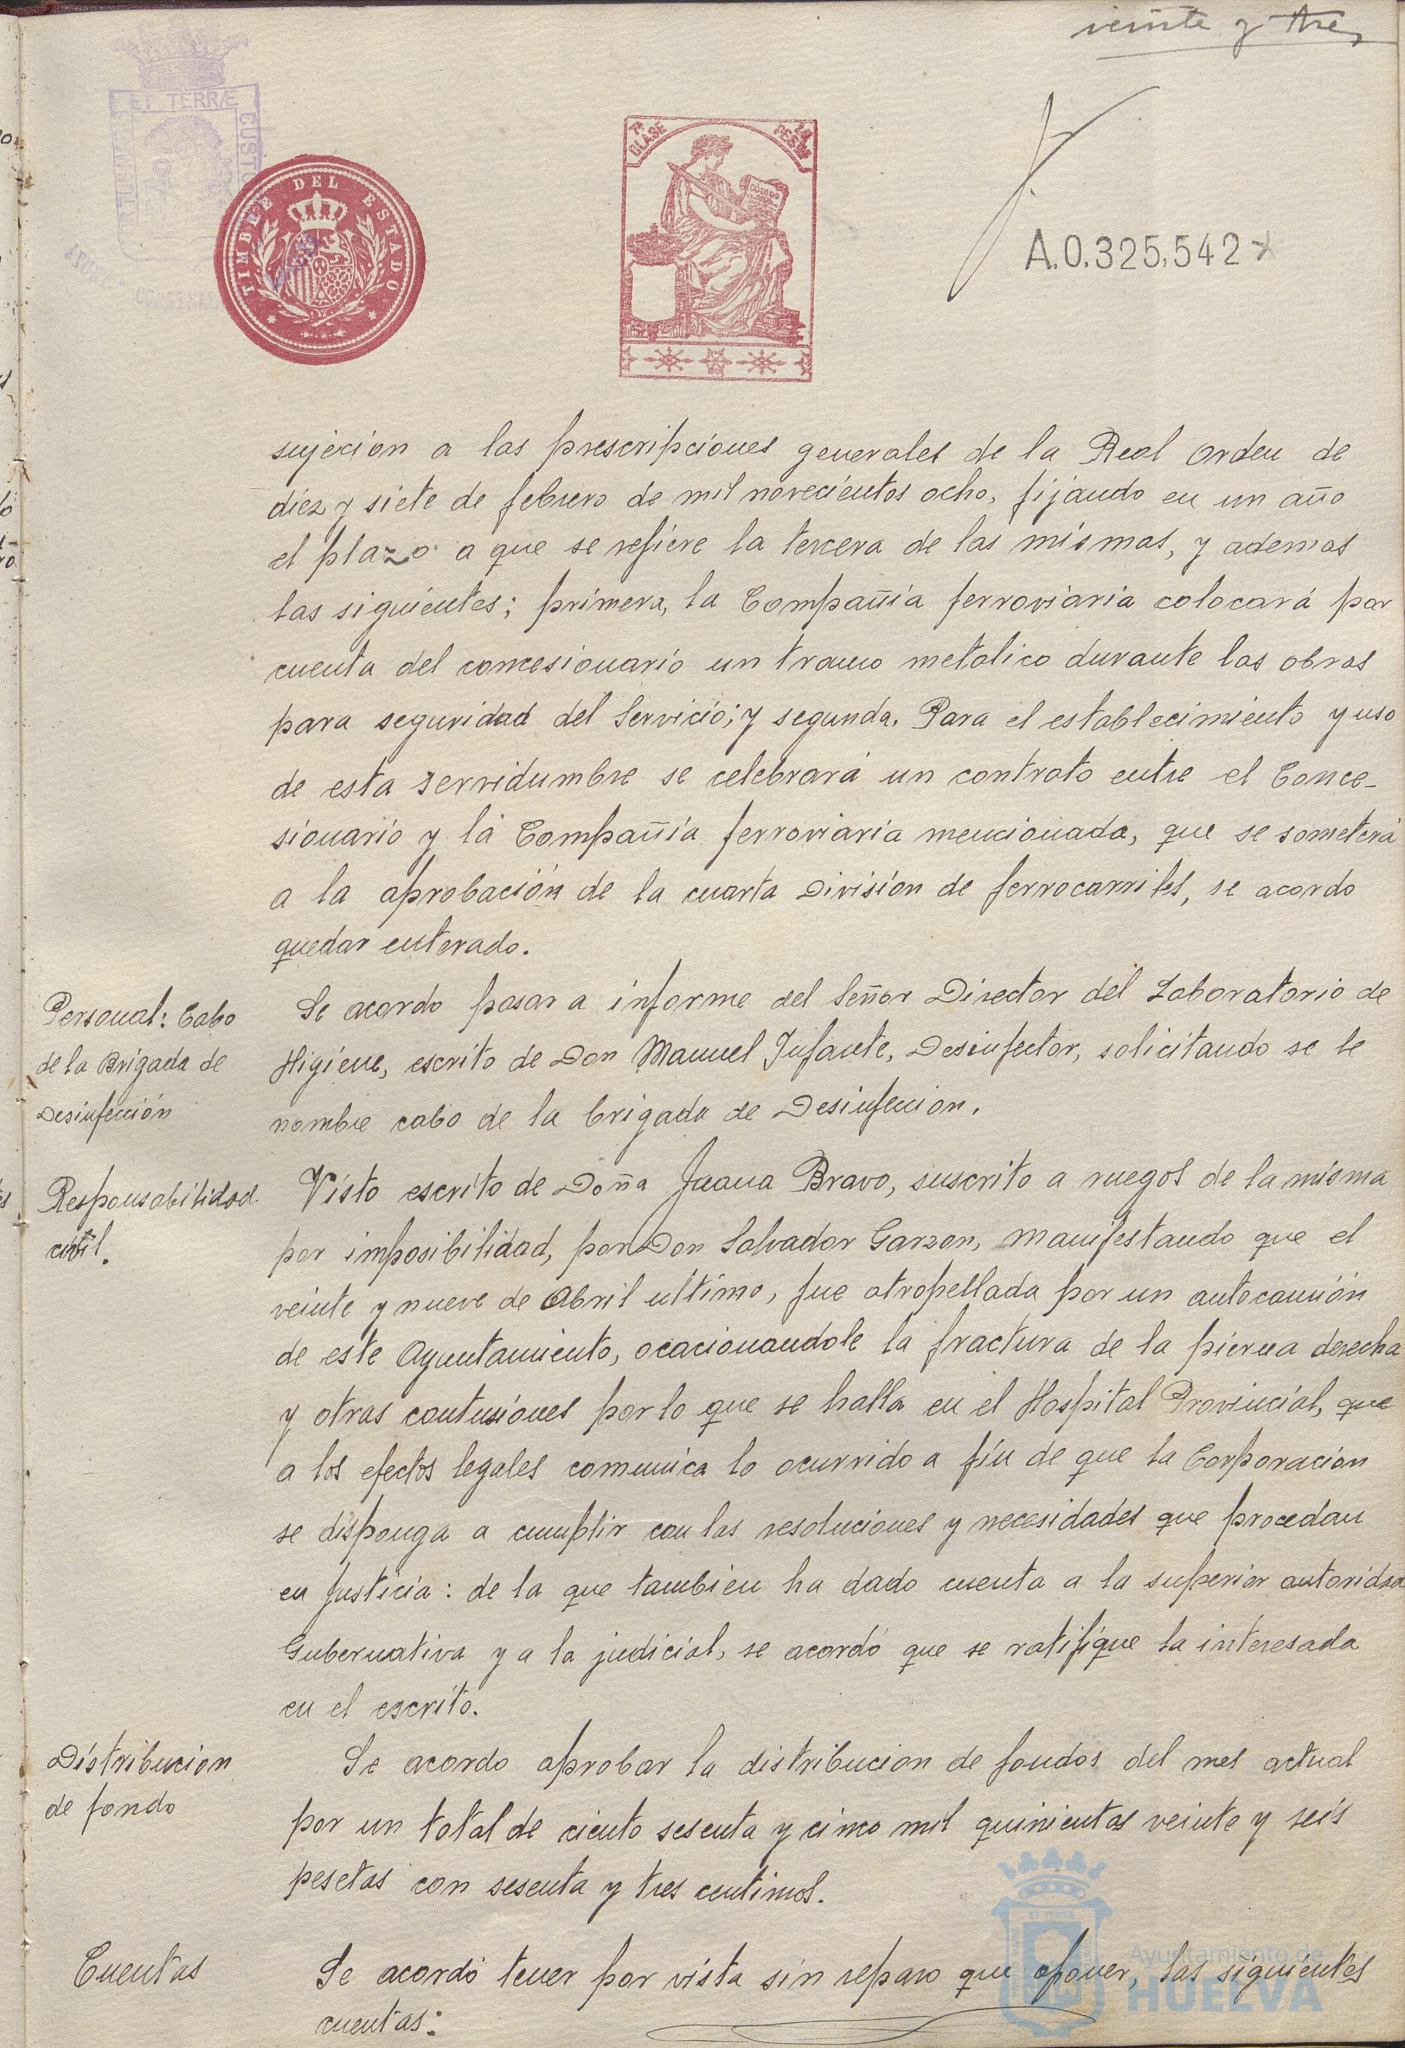 veinte y tres
ET TERRÆ
CUSTO
TIMBRE DEL ESTADO
7ª CLASE
PESETAS
A.0.325,542
sujecion a las prescripciones generales de la Real Orden de
diez y siete de febrero de mil novecientos ocho, fijando en un año
el plazo a que se refiere la tercera de las mismas, y ademas
las siguientes; primera, la Compañia ferroviaria colocará por
cuenta del concesionario un tramo metalico durante las obras
para seguridad del Servicio; y segunda. Para el establecimiento y uso
de esta servidumbre se celebrará un contrato entre el Conce-
sionario y la Compañia ferroviaria mencionada, que se someterá
a la aprobación de la cuarta Division de ferrocarriles, se acordo
quedar enterado.
Personal: Cabo
de la Brigada de
Desinfección
Se acordo pasar a informe del Señor Director del Laboratorio de
Higiene, escrito de Don Manuel Infante, Desinfector, solicitando se le
nombre cabo de la brigada de Desinfeccion.
Responsabilidad
civil.
Visto escrito de Doña Juana Bravo, suscrito a ruegos de la misma
por imposibilidad, por Don Salvador Garzon, manifestando que el
veinte y nueve de Abril ultimo, fue atropellada por un autocamión
de este Ayuntamiento, ocacionandole la fractura de la pierna derecha
y otras contusiones por lo que se halla en el Hospital Provincial, que
a los efectos legales comunica lo ocurrido a fin de que la Corporacion
se disponga a cumplir con las resoluciones y necesidades que procedan
en Justicia: de la que tambien ha dado cuenta a la superior autoridad
Gubernativa y a la judicial, se acordó que se ratifique la interesada
en el escrito.
Distribucion
de fondo
Se acordo aprobar la distribucion de fondos del mes actual
por un total de ciento sesenta y cinco mil quinientas veinte y seis
pesetas con sesenta y tres centimos.
Cuentas
Se acordó tener por vista sin reparo que oponer, las siguientes
cuentas:
Ayuntamiento de
HUELVA